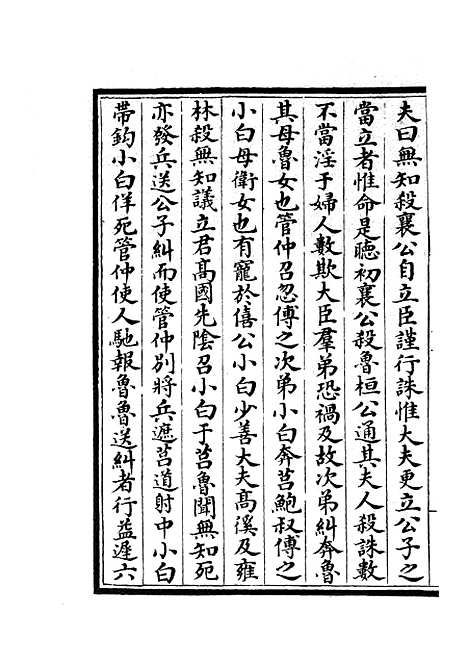 夫曰無知殺襄公自立臣謹行誅惟大夫更立公子之
當立者惟命是聽初襄公殺魯桓公通其夫人殺誅數
不當淫于婦人數欺大臣羣弟恐禍及故次弟糾奔魯
其母魯女也管仲召忽傅之次弟小白奔莒鮑叔傅之
小白母衛女也有寵於僖公小白少善大夫高傒及雍
林殺無知議立君高國先陰召小白于莒魯聞無知死
亦發兵送公子糾而使管仲别將兵遮莒道射中小白
帶鈎小白佯死管仲使人馳報魯魯送糾者行益遲六